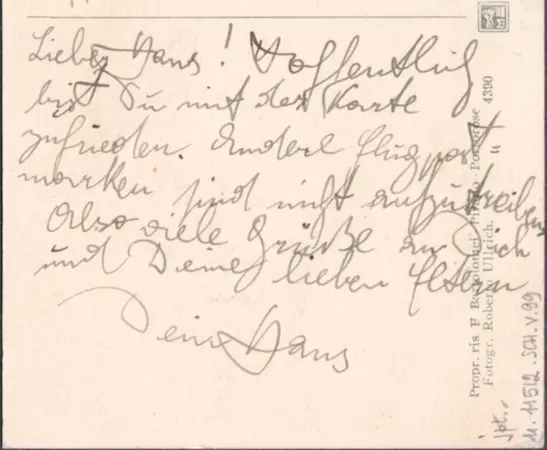 Lieber Hans! Hoffentlich
bist Du mit der Karte
zufrieden. Andere Flugpost
marken sind nicht aufzutreiben
Also viele Grüße an Dich
und Deine lieben Eltern
Dein Hans
Propr. ris. F. Bartolomei Portorose
Fotogr. Robert Ullrich. 4390
jpt.-
u. 11512 SCH. V. 99